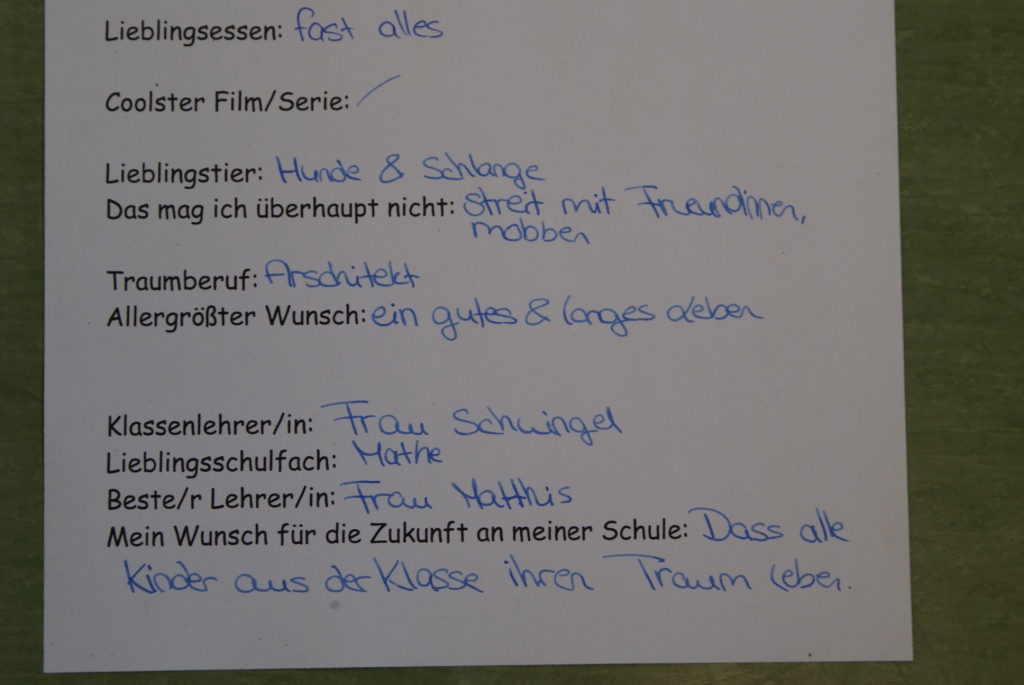 Lieblingsessen: fast alles
Coolster Film/Serie: /
Lieblingstier: Hunde & Schlange
Das mag ich überhaupt nicht: Streit mit Freundinnen,
mobben
Traumberuf: Arschitekt
Allergrößter Wunsch: ein gutes & langes Leben
Klassenlehrer/in: Frau Schwingel
Lieblingsschulfach: Mathe
Beste/r Lehrer/in: Frau Matthis
Mein Wunsch für die Zukunft an meiner Schule: Dass alle
Kinder aus der Klasse ihren Traum leben.